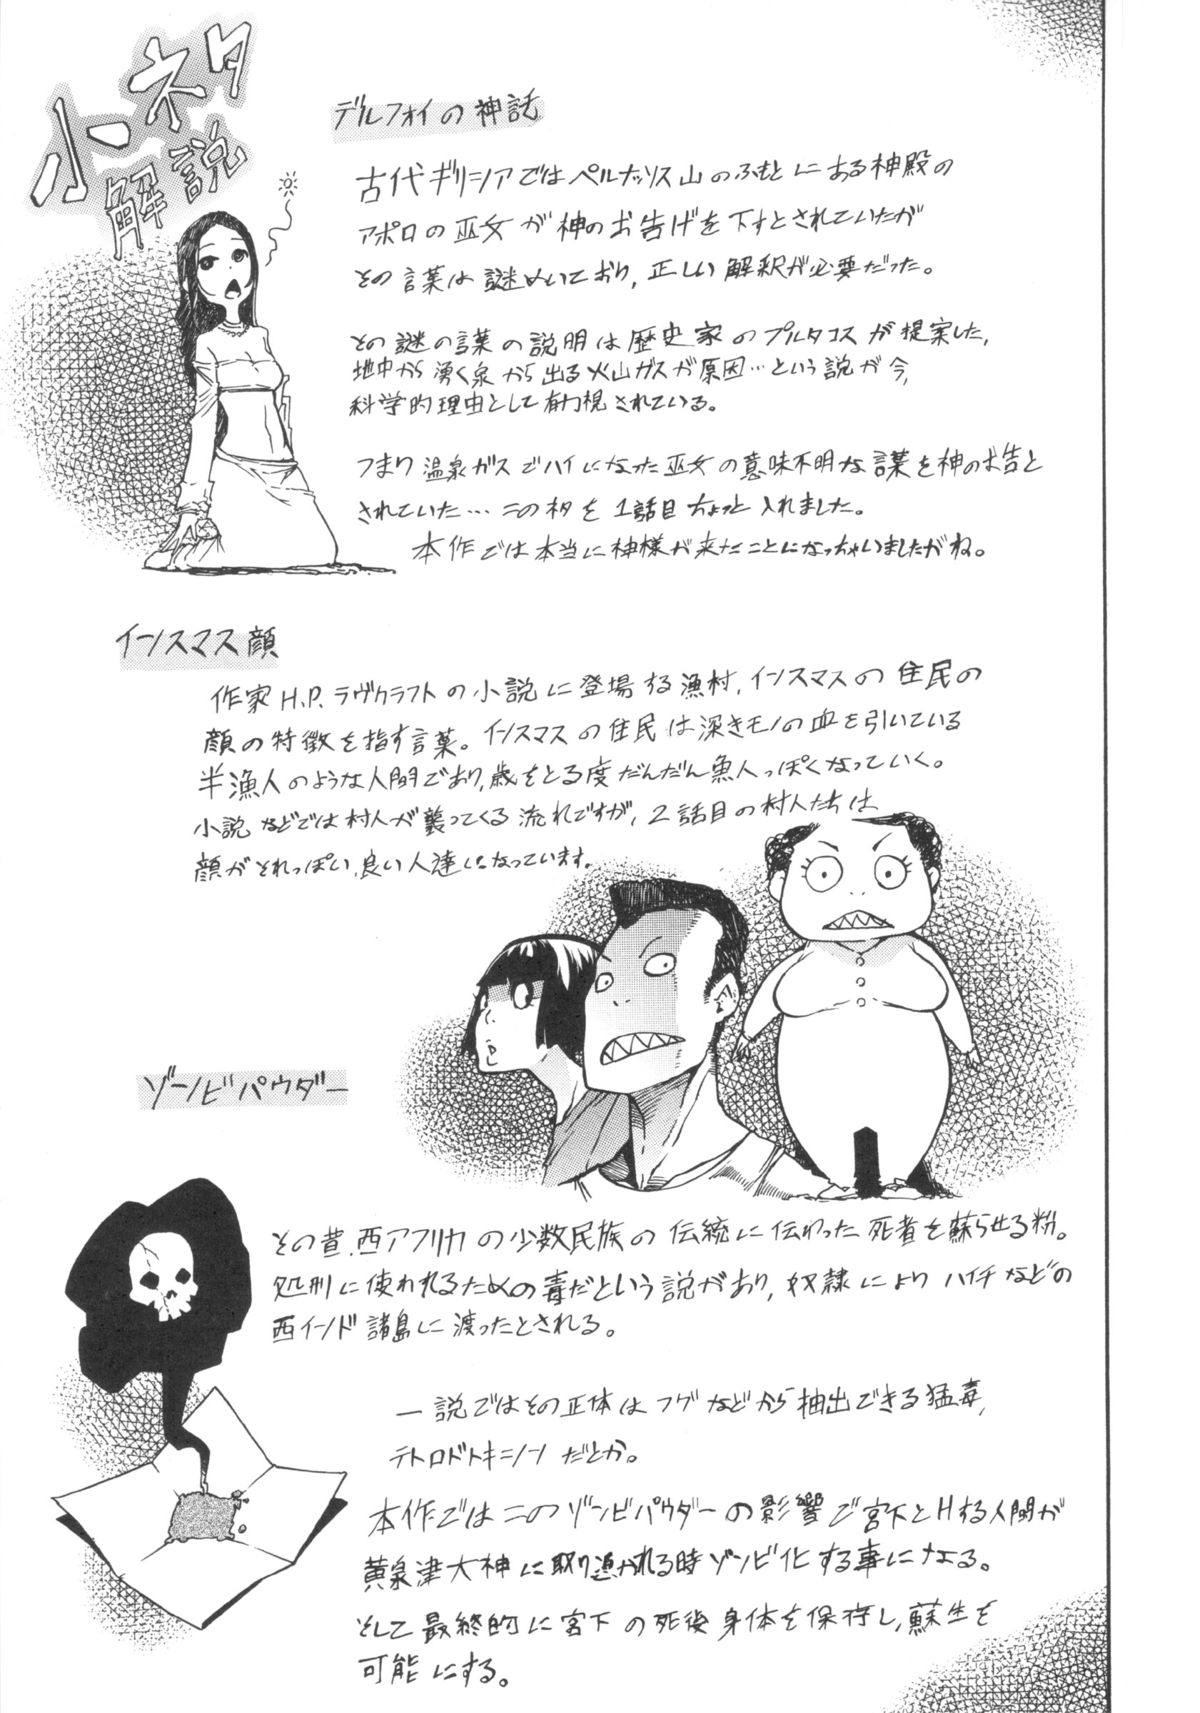 小ネタ
解説
デルフォイの神話
古代ギリシアではペルナッソス山のふもとにある神殿の
アポロの巫女が神のお告げを下すとされていたが
その言葉は謎めいており,正しい解釈が必要だった。
その謎の言葉の説明は歴史家のプルタコスが提案した,
地中から湧く泉から出る火山ガスが原因…という説が今,
科学的理由として有力視されている。
つまり温泉ガスでハイになった巫女の意味不明な言葉を神のお告と
されていた…このネタを1話目ちょっと入れました。
本作では本当に神様が来たことになっちゃいましたがね。
インスマス顔
作家H.P.ラヴクラフトの小説に登場する漁村,インスマスの住民の
顔の特徴を指す言葉。インスマスの住民は深きモノの血を引いている
半漁人のような人間であり,歳をとる度だんだん魚人っぽくなっていく。
小説などでは村人が襲ってくる流れですが,2話目の村人たちは
顔がそれっぽい,良い人達になっています。
ゾンビパウダー
その昔,西アフリカの少数民族の伝統に伝わった死者を蘇らせる粉。
処刑に使われるための毒だという説があり,奴隷によりハイチなどの
西インド諸島に渡ったとされる。
一説ではその正体はフグなどから抽出できる猛毒,
テトロドトキシンだとか。
本作ではこのゾンビパウダーの影響で宮下とHする人間が
黄泉津大神に取り込かれる時ゾンビ化する事になる。
そして最終的に宮下の死後身体を保存し,蘇生を
可能にする。